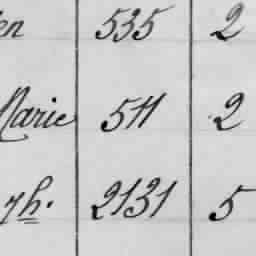 en 535 2
Marie 511 2
yh. 2131 5